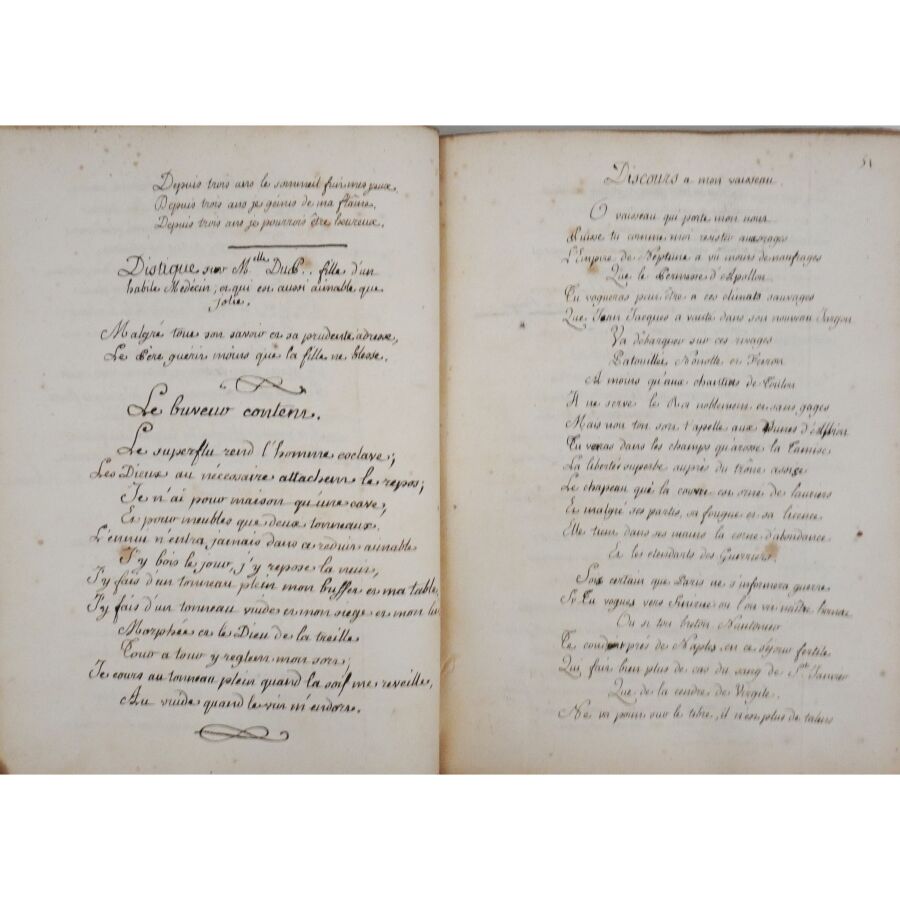 Depuis trois ans le sommeil fuit mes yeux,
Depuis trois ans je gémis de ma flâme,
Depuis trois ans je pourrois être heureux.
Distique sur Melle. DuB.. fille d'un
habile Medecin, et qui est aussi aimable que
jolie.
Malgré tout son savoir et sa prudente adresse,
Le Père guérit moins que la fille ne blesse.
Le buveur content.
Le superflu rend l'homme esclave;
Les Dieux au nécessaire attachent le repos;
Je n'ai pour maison qu'une cave,
Et pour meubles que deux tonneaux.
L'ennui n'entra jamais dans ce réduit aimable
J'y bois le jour, j'y repose la nuit,
J'y fais d'un tonneau plein mon buffet et ma table,
J'y fais d'un tonneau vuide et mon siege et mon lit
Morphée et le Dieu de la treille
Tour a tour y reglent mon sort,
Je cours au tonneau plein quand la soif me reveille,
Au vuide quand le vin m'endort.
51
Discours a mon vaisseau.
O vaisseau qui porte mon nom
Puisse tu comme moi resister aux orages
L'Empire de Neptune a vu moins de naufrages
Que le Permesse d'Apollon.
Tu vogueras peut être a ces climats sauvages
Que Jean Jacques a vanté dans son nouveau Jargon
Va débarquer sur ces rivages
Patouillet Nonotte et Freron
A moins qu'aux chantiers de Toulon
Il ne serve le Roi noblement et sans gages
Mais non ton sort t'apelle aux Dunes d'Albion
Tu verras dans les champs qu'arose la Tamise
La liberté superbe auprès du trône assise
Le chapeau qui la couvre est orné de lauriers
Et malgré ses partis, sa fougue et sa licence
Elle tient dans ses mains la corne d'abondance
Et les etendards des Guerriers.
Sois certain que Paris ne s'informera guerre
Si Tu vogues vers Smirne ou l'on vit naitre homere
Ou si ton breton Nautonier
Te conduit près de Naples, en ce séjour fertile
Qui fait bien plus de cas du sang de St. Janvier
Que de la cendre de Virgile.
Ne va point sur le tibre, il n'est plus de talens